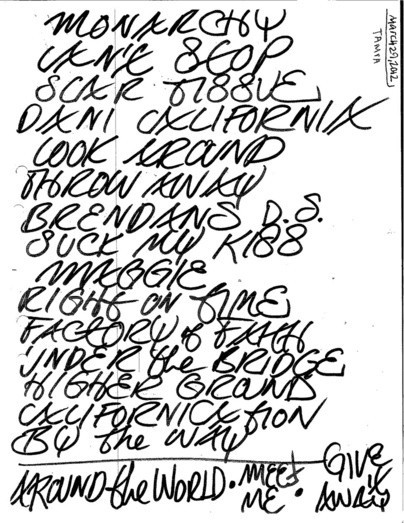 MARCH 29, 2012
TAMPA
MONARCHY
CAN'T STOP
SCAR TISSUE
DANI CALIFORNIA
LOOK AROUND
THROW AWAY
BRENDANS D.S.
SUCK MY KISS
MAGGIE
RIGHT ON TIME
FACTORY of FAITH
UNDER the BRIDGE
HIGHER GROUND
CALIFORNICATION
BY the WAY
AROUND the WORLD • MEET ME • GIVE IT AWAY